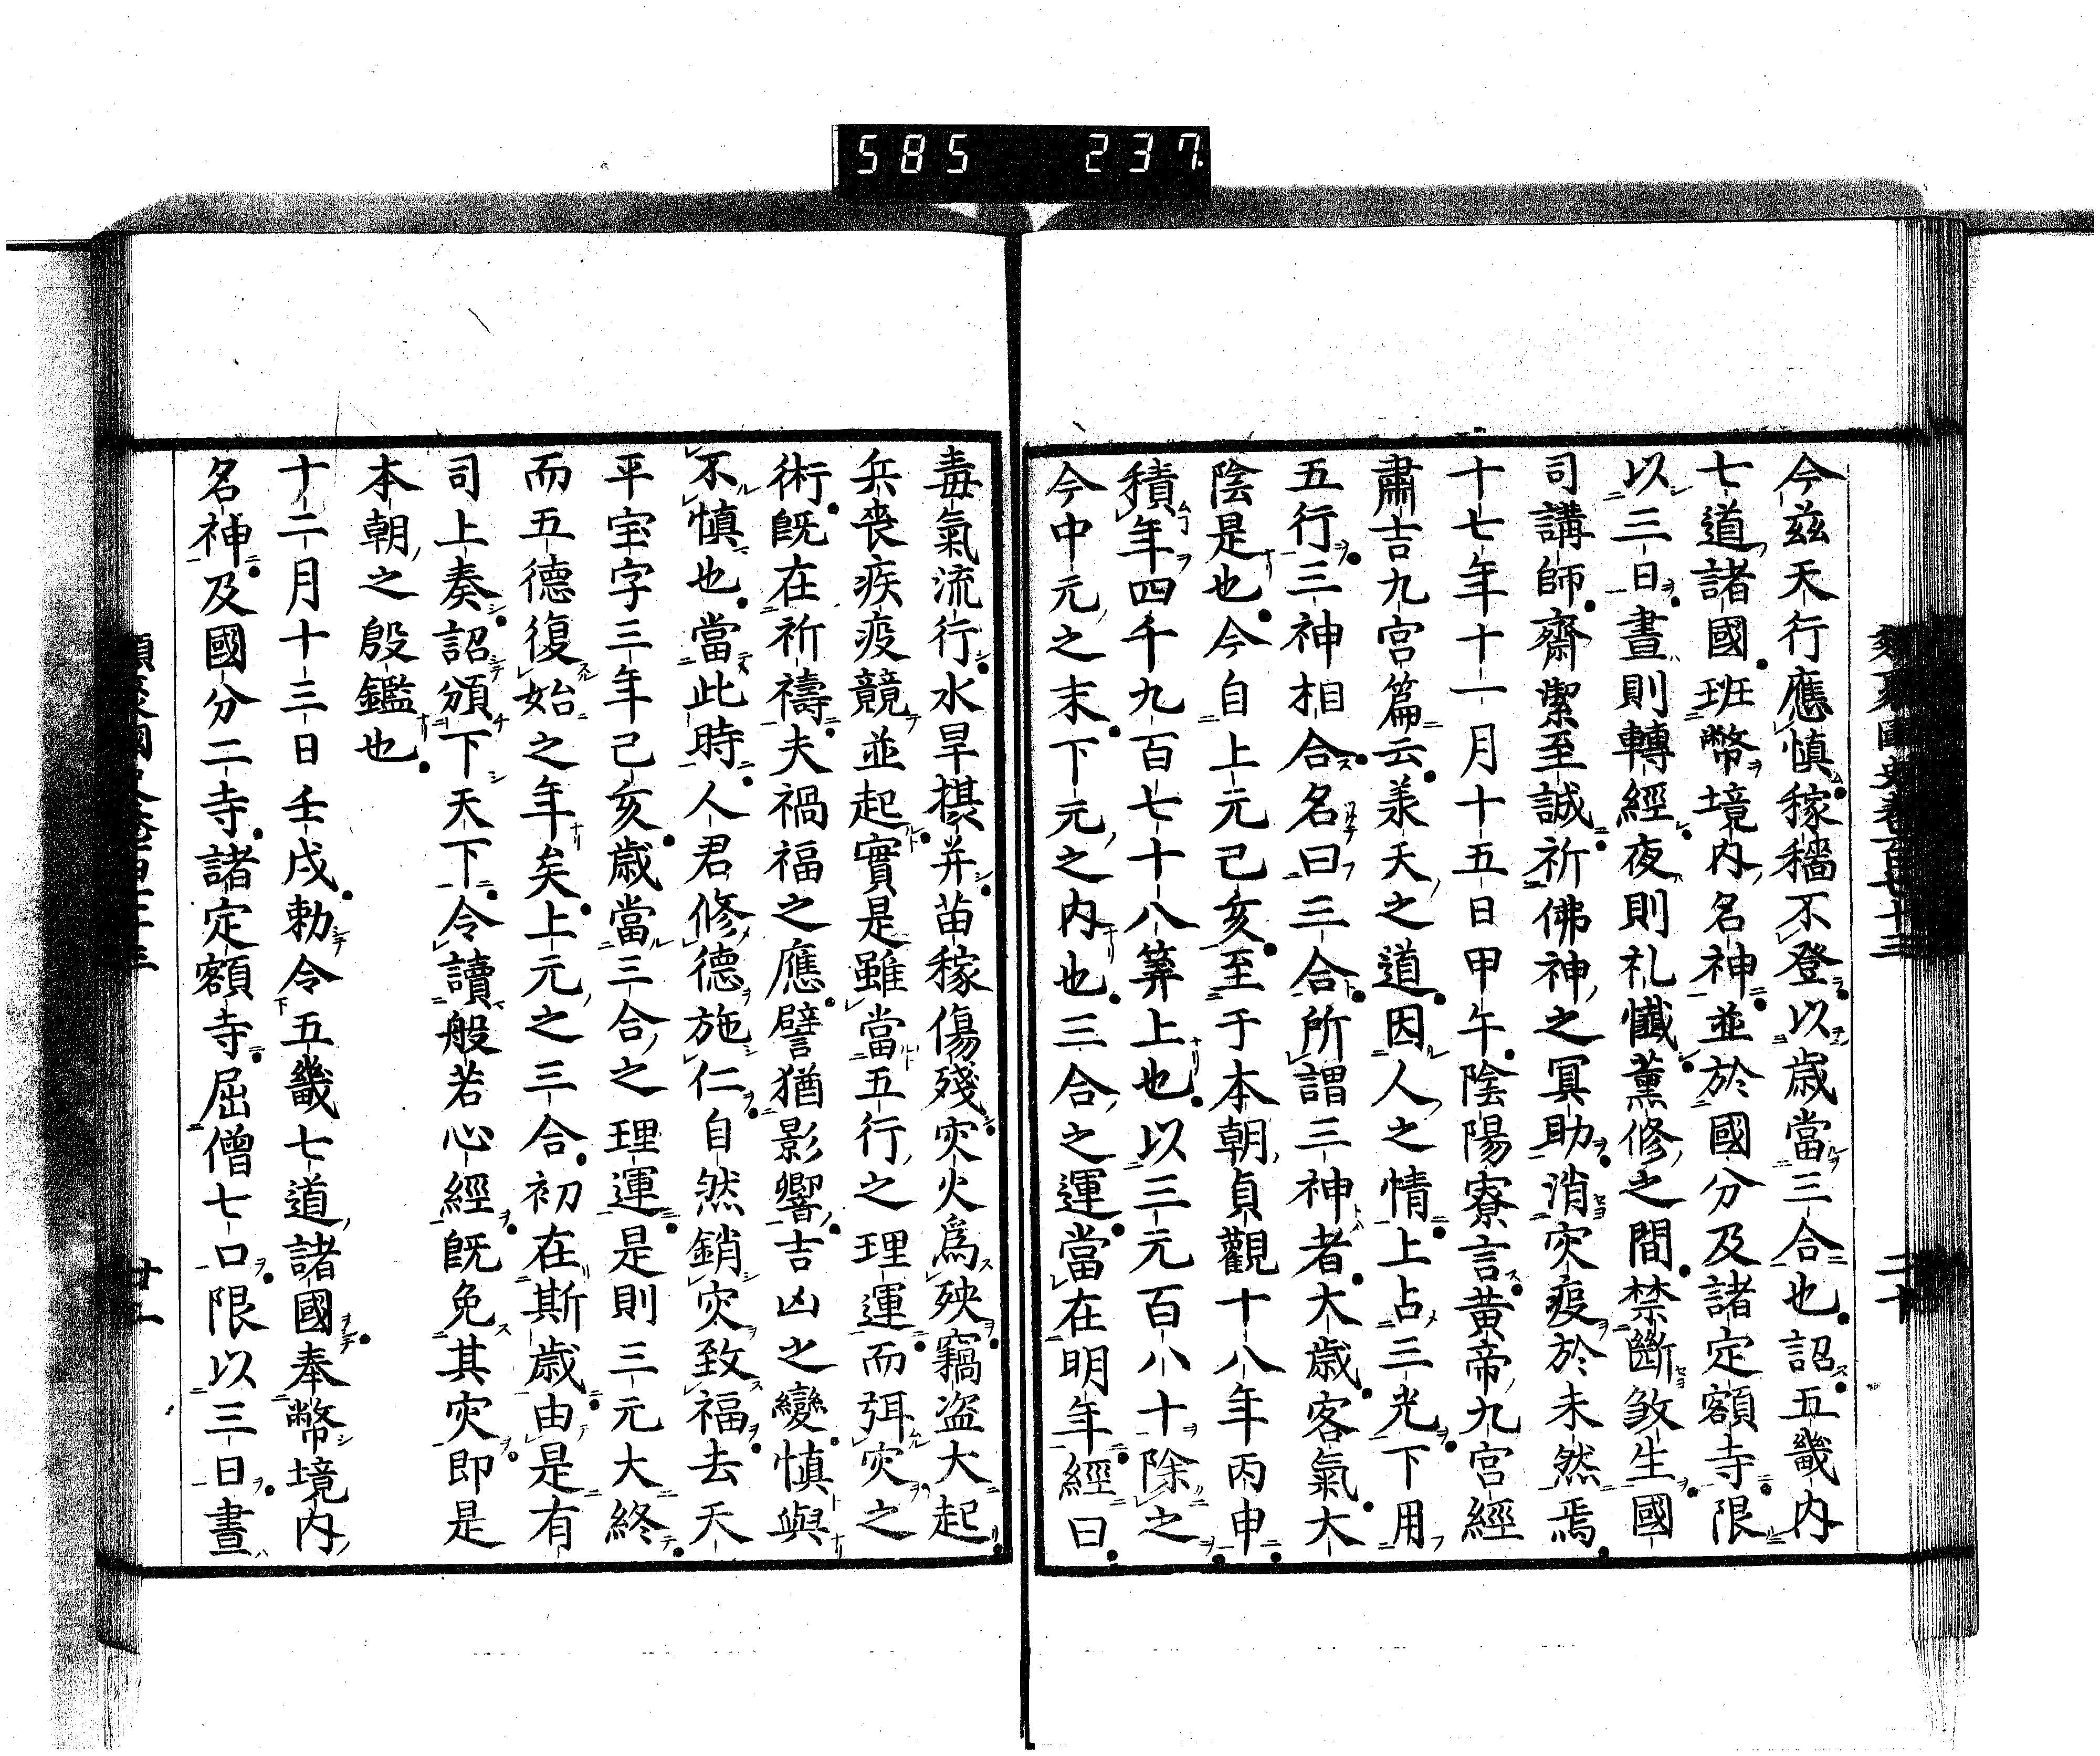 585 237
今茲天行應慎稼穡不登以歳當三合也詔五畿内
七道諸國班幣境内名神並於國分及諸定額寺限
以三日晝則轉經夜則礼懺薫修之間禁斷敓生國
司講師齋潔至誠祈佛神之冥助消灾疫於未然焉
十七年十一月十五日甲午陰陽寮言黃帝九宮經
肅吉九宮篇云羕天之道因人之情上占三光下用
五行三神相合名曰三合所謂三神者大歳客氣大
陰是也今自上元己亥至于本朝貞觀十八年丙申
積年四千九百七十八筭上也以三元百八十除之
今中元之末下元之内也三合之運當在明年經曰
毒氣流行水旱摸并苗稼傷殘灾火為殃竊盗大起
兵喪疾疫競並起實是雖當五行之理運而弭灾之
術既在祈禱夫禍福之應譬猶影響吉凶之變慎與
不慎也當此時人君修德施仁自然銷灾致福去天
平宝字三年己亥歳當三合之理運是則三元大終
而五德復始之年矣上元之三合初在斯歳由是有
司上奏詔頒下天下令讀般若心經既免其灾即是
本朝之殷鑑也
十二月十三日壬戌勅令五畿七道諸國奉幣境内
名神及國分二寺諸定額寺屈僧七口限以三日晝